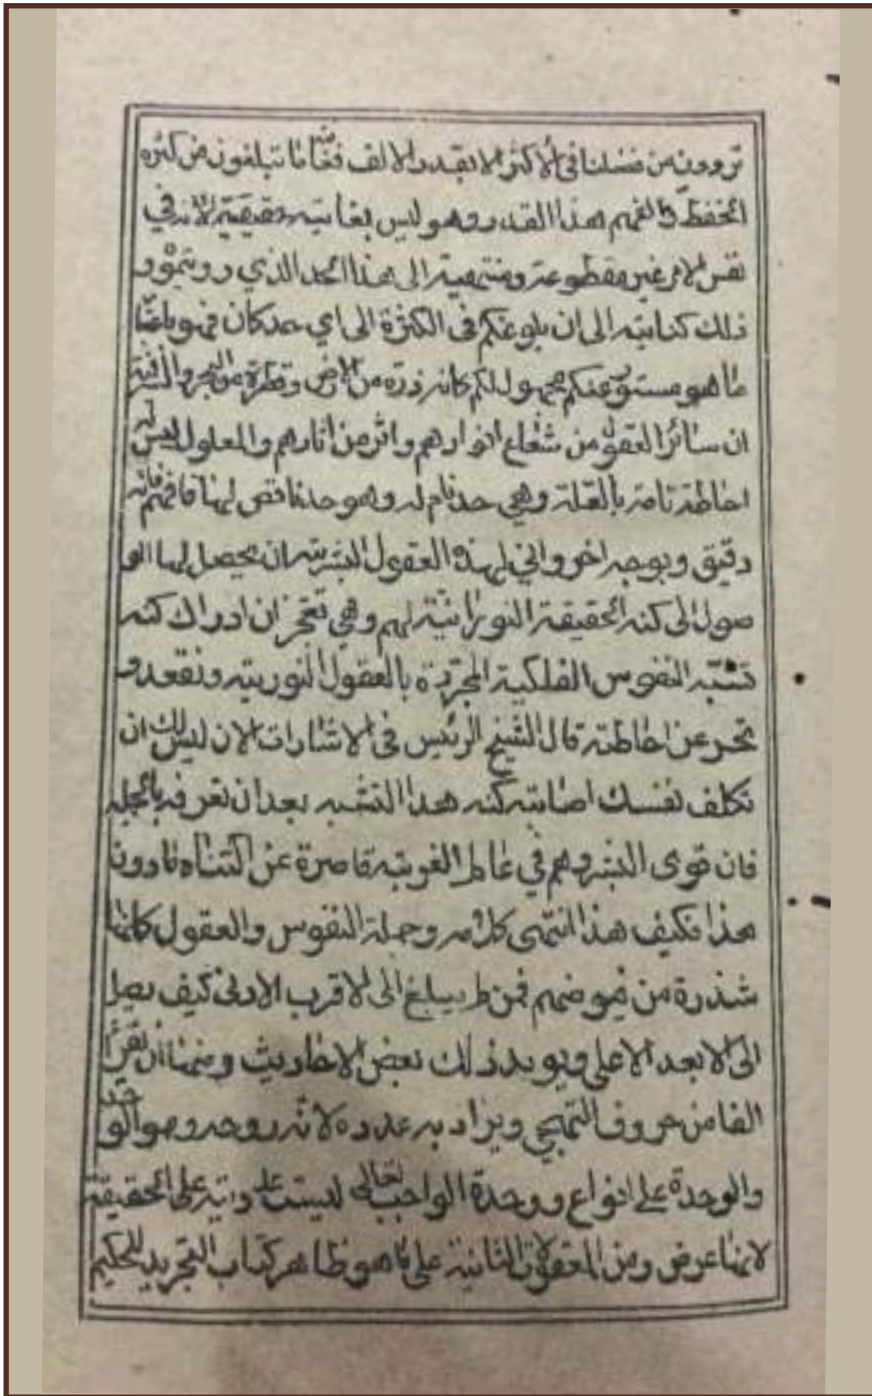 تروون من فضلنا في الاكثر الا بقدر الالف فغاية ما تبلغون من كثرة
الحفظ والفهم هذا القدر وهو ليس بغايته حقيقية لانه في
نفس الامر غير مقطوعة ومنتهية الى هذا الحد الذي
ذلك كناية الى ان بلوغكم في الكثرة الى اي حد كان فهو
ما هو مستور عنكم مجهول لكم كانه ذرة من الارض وقطرة من البحر والسر فيه
ان سائر العقول من شعاع انوارهم واثر من اثارهم والمعلول ليس له
احاطة تامة بالعلة وهي حد تام له وهو حد ناقص لها فافهم فانه
دقيق وبوجه اخر واني لهذه العقول البشرية ان يحصل لها الو
صول الى كنه الحقيقة النورانية لهم وهي تعجز ان ادراك كنه
تشبه النفوس الفلكية المجردة بالعقول النورية ونقعد و
عن احاطته قال الشيخ الرئيس في الاشارات الان ليس لك ان
تكلف نفسك اصابته كنه هذا التشبه بعد ان تعرفه بالجملة
فان قوى البشر وهم في عالم الغربة قاصرة عن اكتناه ما دون
هذا فكيف هذا انتهى كلامه وجملة النفوس والعقول كانها
شذرة من فيوضهم فمن لم يبلغ الى الاقرب الادنى كيف يصل
الى الابعد الاعلى ويويد ذلك بعض الاحاديث ومنها ان يقرء
الفا من حروف التهجي ويراد به عدده لانه روحه وهو الواحد
والوحدة على انواع ووحدة الواجب تعالى ليست عددية على الحقيقة
لانها عرض ومن المعقولات الثانية على ما هو ظاهر كتاب التجريد للحكيم